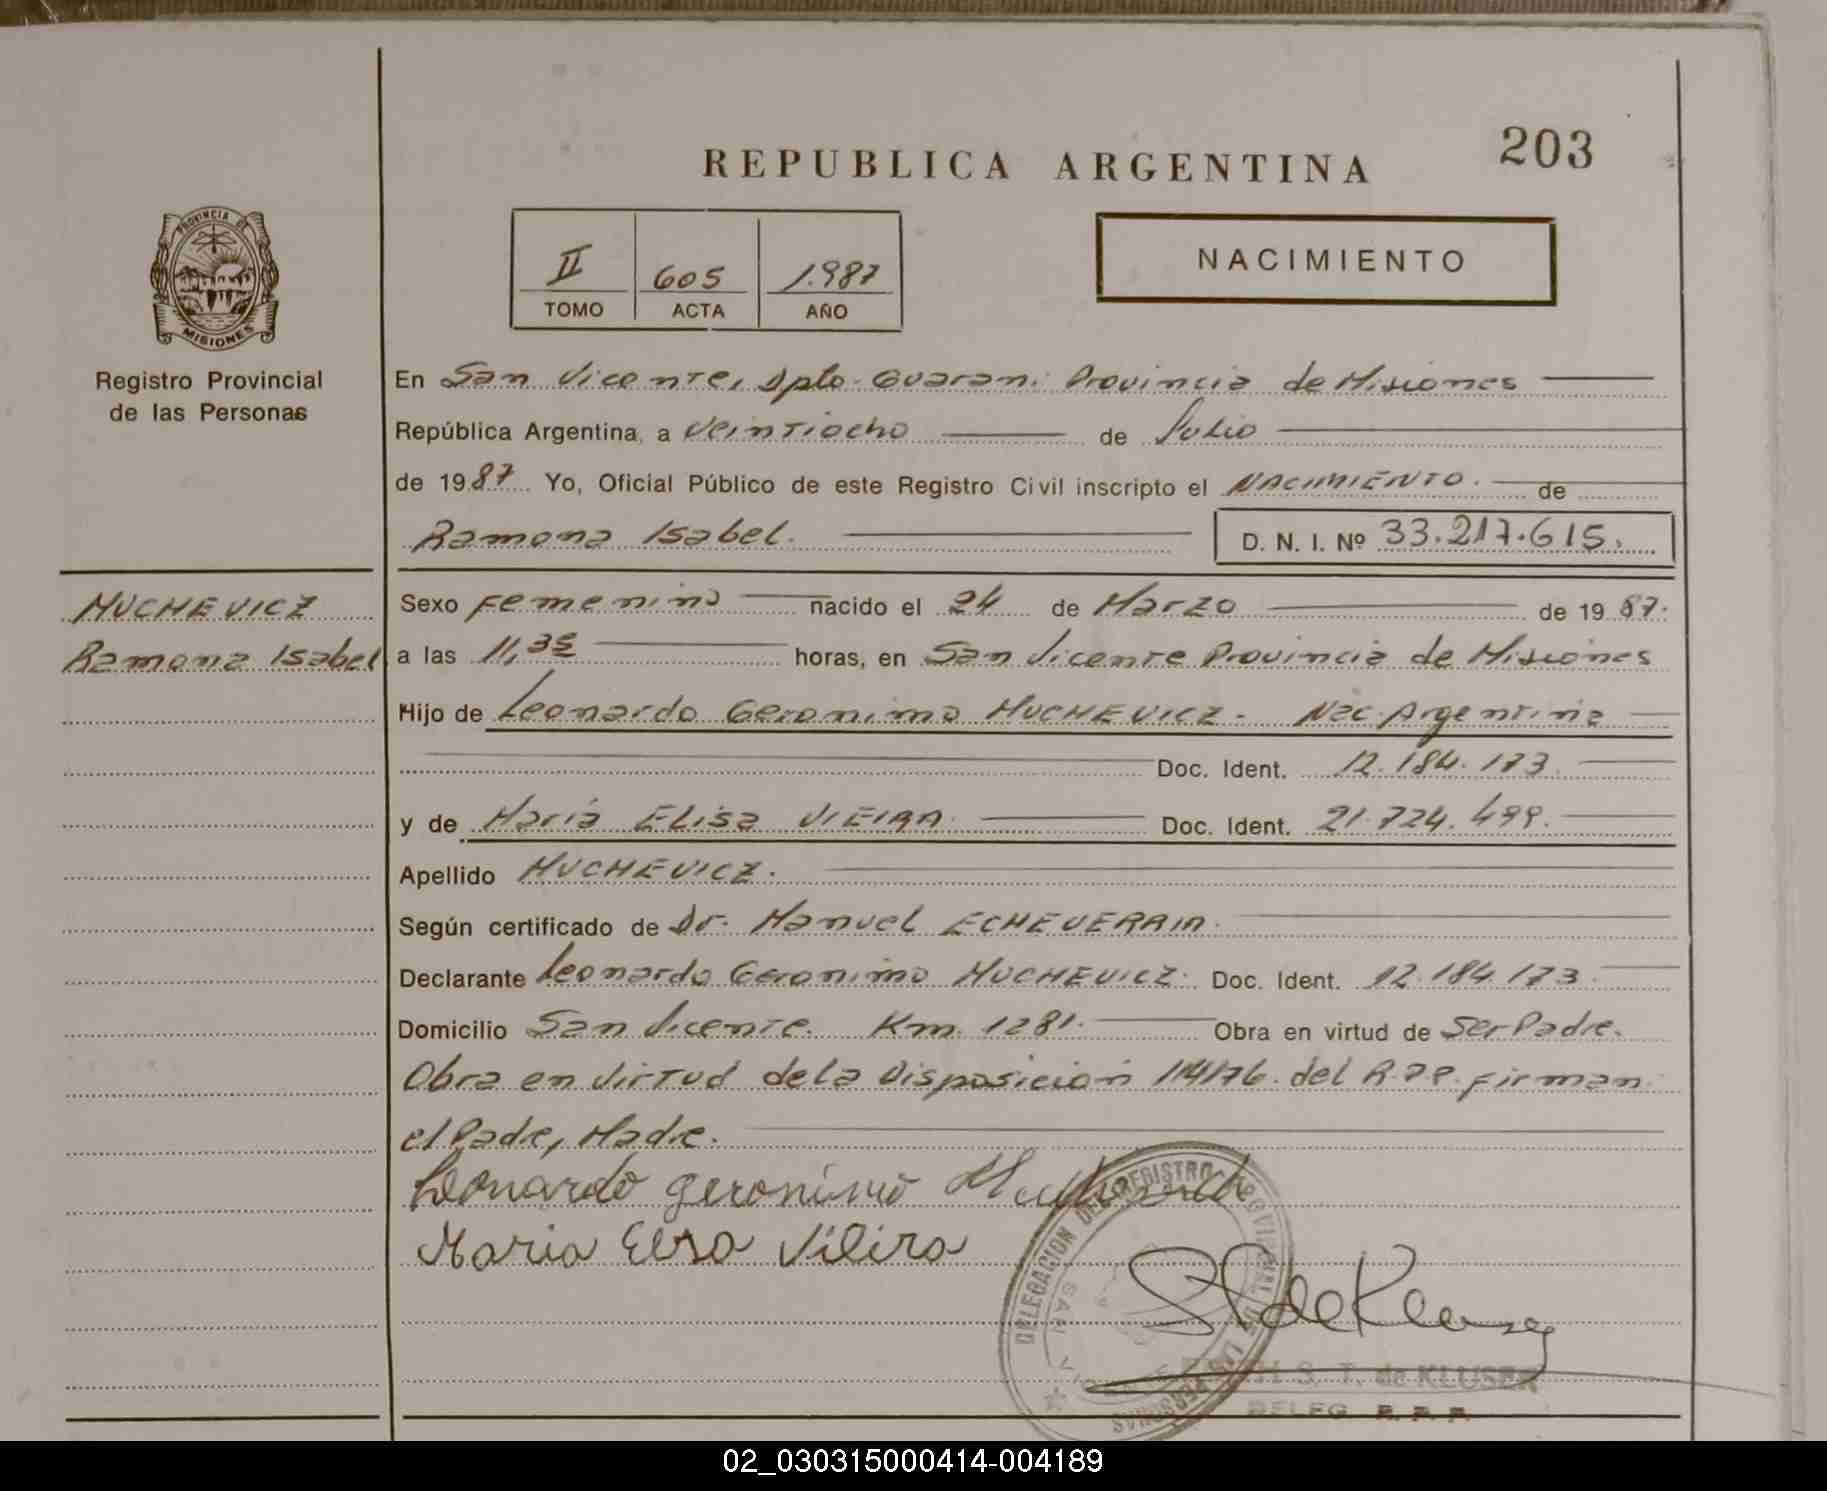 203
REPUBLICA ARGENTINA
PROVINCIA DE
MISIONES
Registro Provincial
de las Personas
II 605 1.987
TOMO ACTA AÑO
NACIMIENTO
En San Vicente, Dpto. Guarani Provincia de Misiones
República Argentina, a Veintiocho de Julio
de 1987 Yo, Oficial Público de este Registro Civil inscripto el NACIMIENTO. de
Ramona Isabel. D. N. I. Nº 33.217.615.
MUCHEVICZ
Ramona Isabel
Sexo Femenino nacido el 24 de Marzo de 1987.
a las 11,35 horas, en San Vicente Provincia de Misiones
Hijo de Leonardo Geronimo MUCHEVICZ - Nac. Argentina
Doc. Ident. 12.184.173.
y de Maria Elisa VIEIRA. Doc. Ident. 21.724.499.
Apellido MUCHEVICZ.
Según certificado de Dr. Manuel ECHEVERRIA.
Declarante Leonardo Geronimo MUCHEVICZ. Doc. Ident. 12.184.173.
Domicilio San Vicente. Km. 1281. Obra en virtud de Ser Padre.
Obra en Virtud de la Disposición 114/76. del R.P.P. firman
el Padre, Madre.
Leonardo geronimo
Maria Elsa Vieira
DELEGACION DEL REGISTRO PROVINCIAL DE LAS PERSONAS
SAN VICENTE
S. T. de Kluser
S. T. de KLUSER
DELEG. R. P. P.
02_030315000414-004189